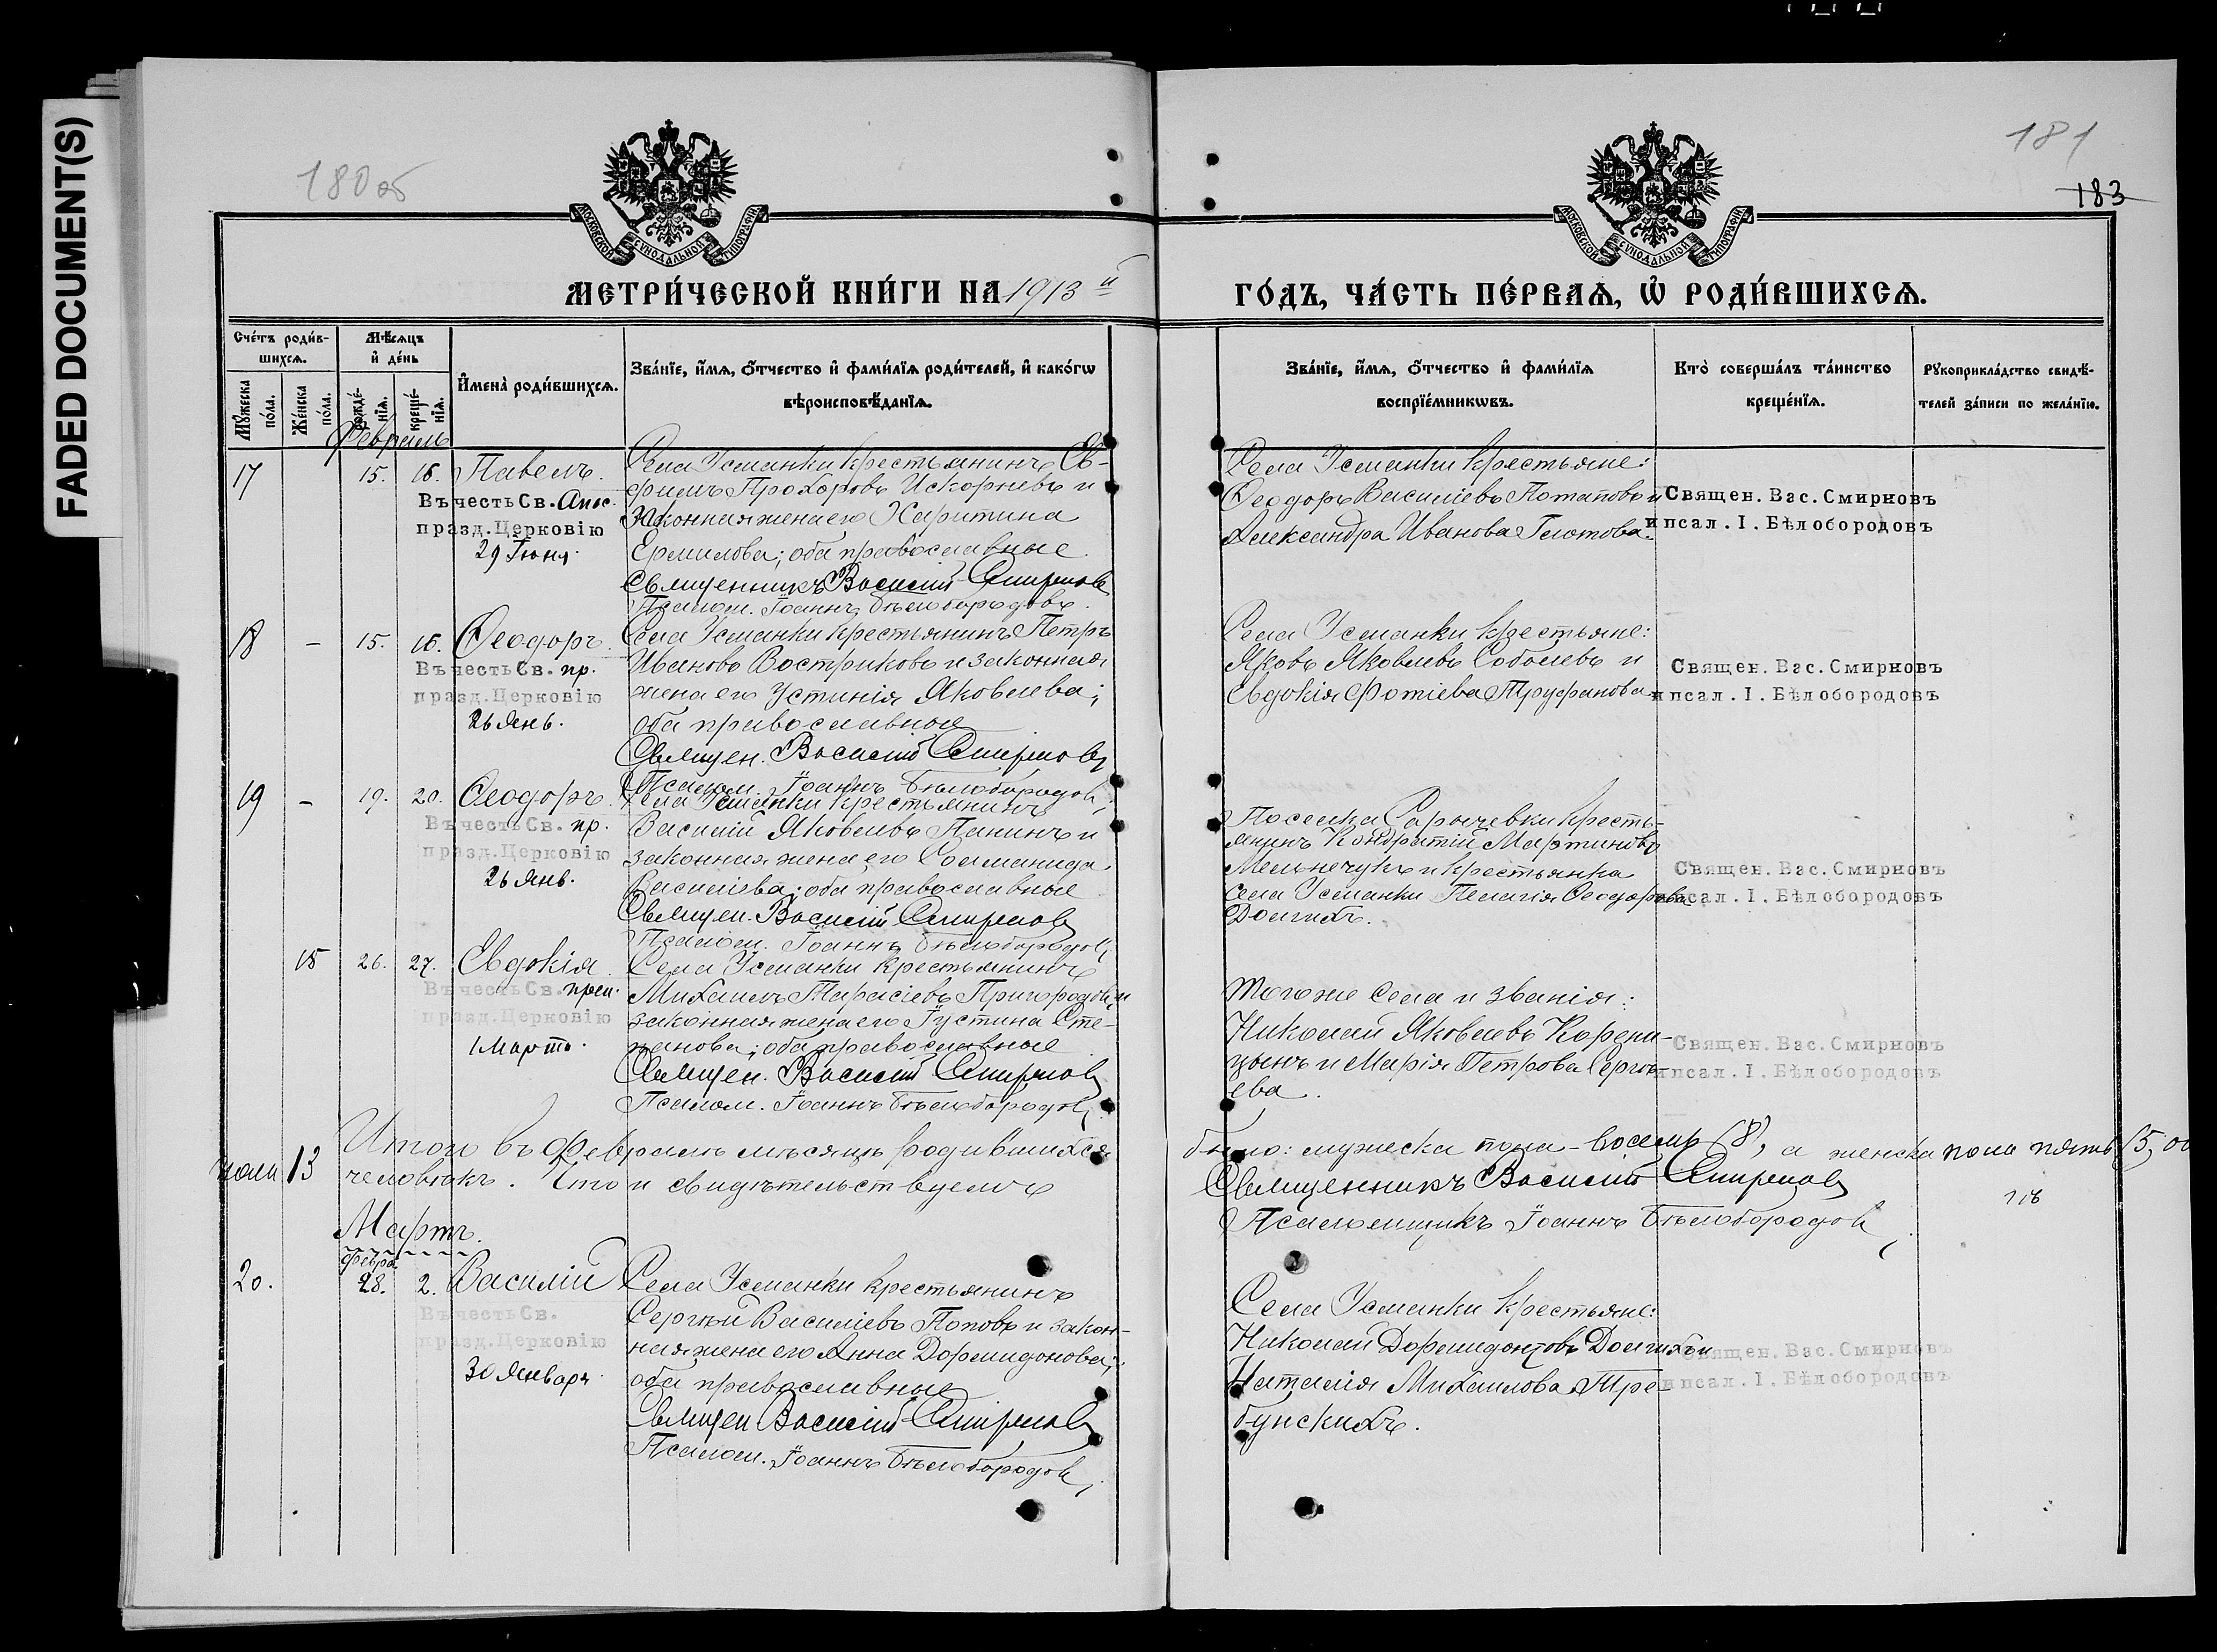 FADED DOCUMENT(S)
180 об
181
183
МОСКОВСКОЙ СѴНОДАЛЬНОЙ ТИПОГРАФІИ
МОСКОВСКОЙ СѴНОДАЛЬНОЙ ТИПОГРАФІИ
МЕТРИ́ЧЕСКОЙ КНИ́ГИ НА 1913 й
ГО́ДЪ, ЧА́СТЬ ПЕ́РВАѦ, Ѡ҆ РОДИ́ВШИХСѦ.
Сче́тъ роди́в-
шихсѧ.
Мꙋ́жеска по́ла.
Же́нска по́ла.
Мѣ́сѧцъ
и҆ де́нь
рожде́-
нїѧ.
креще́-
нїѧ.
И҆мена̀ роди́вшихсѧ.
Зва́нїе, и҆́мѧ, ѻ҆́тчество и҆ фами́лїѧ роди́телей, и҆ како́гѡ
вѣроисповѣ́данїѧ.
Зва́нїе, и҆́мѧ, ѻ҆́тчество и҆ фами́лїѧ
воспрїе́мникѡвъ.
Кто̀ соверша́лъ та́инство
креще́нїѧ.
Рꙋкоприкла́дство свидѣ́-
телей за́писи по жела́нїю.
Февраль
17 15. 16. Павелъ.
Въ честь Св. Апос.
празд. Церковію
29 Іюня.
Села Усманки крестьянинъ Ев-
фимъ Прохоровъ Искорневъ и
законная жена его Харитина
Ермилова; оба православные.
Священникъ Василій Смирновъ
Псалом. Іоаннъ Бѣлобородовъ.
Села Усманки крестьяне:
Ѳеодоръ Василіевъ Потаповъ и
Александра Иванова Глотова.
Священ. Вас. Смирновъ
и псал. І. Бѣлобородовъ
18 – 15. 16. Ѳеодоръ.
Въ честь Св. пр.
празд. Церковію
26 Янв.
Села Усманки крестьянинъ Петръ
Ивановъ Востриковъ и законная
жена его Устинія Яковлева;
оба православные
Священ. Василій Смирновъ
Псалом. Іоаннъ Бѣлобородовъ
Села Усманки крестьяне:
Яковъ Яковлевъ Соболевъ и
Евдокія Фотіева Труфанова
Священ. Вас. Смирновъ
и псал. І. Бѣлобородовъ
19 – 19. 20. Ѳеодоръ.
Въ честь Св. пр.
празд. Церковію
26 Янв.
Села Усманки крестьянинъ
Василій Яковлевъ Панинъ и
законная жена его Соломанида
Василіева; оба православные
Священ. Василій Смирновъ
Псалом. Іоаннъ Бѣлобородовъ
Поселка Сарычевки кресть-
янинъ Кондратій Мартиновъ
Мельнечукъ и крестьянка
села Усманки Пелагія Ѳеодорова
Долгихъ.
Священ. Вас. Смирновъ
и псал. І. Бѣлобородовъ
15 26. 27. Евдокія.
Въ честь Св. преп.
празд. Церковію
1 Марта.
Села Усманки крестьянинъ
Михаилъ Тарасіевъ Пригородовъ и
законная жена его Іустина Сте-
панова; оба православные
Священ. Василій Смирновъ
Псалом. Іоаннъ Бѣлобородовъ
Того же села и званія:
Николай Яковлевъ Корени-
цынъ и Марія Петрова Сергѣ-
ева.
Священ. Вас. Смирновъ
и псал. І. Бѣлобородовъ
Итого въ Февралѣ мѣсяцѣ родившихся
было: мужеска пола – восемь (8), а женска пола пять (5)
13 человѣкъ. Что и свидѣтельствуемъ
Священникъ Василій Смирновъ
Псаломщикъ Іоаннъ Бѣлобородовъ
Мартъ.
февра.
20. 28. 2. Василій
Въ честь Св.
празд. Церковію
30 Января.
Села Усманки крестьянинъ
Сергѣй Василіевъ Поповъ и закон-
ная жена его Анна Дормидонова;
оба православные
Священ. Василій Смирновъ
Псалом. Іоаннъ Бѣлобородовъ
Села Усманки крестьяне:
Николай Дормидонтовъ Долгихъ и
Наталія Михаилова Тре-
бунскихъ.
Священ. Вас. Смирновъ
и псал. І. Бѣлобородовъ